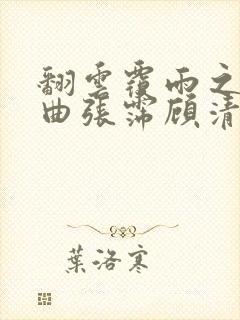 翻雲覆雨之
曲張霈顧清
葉洛寒